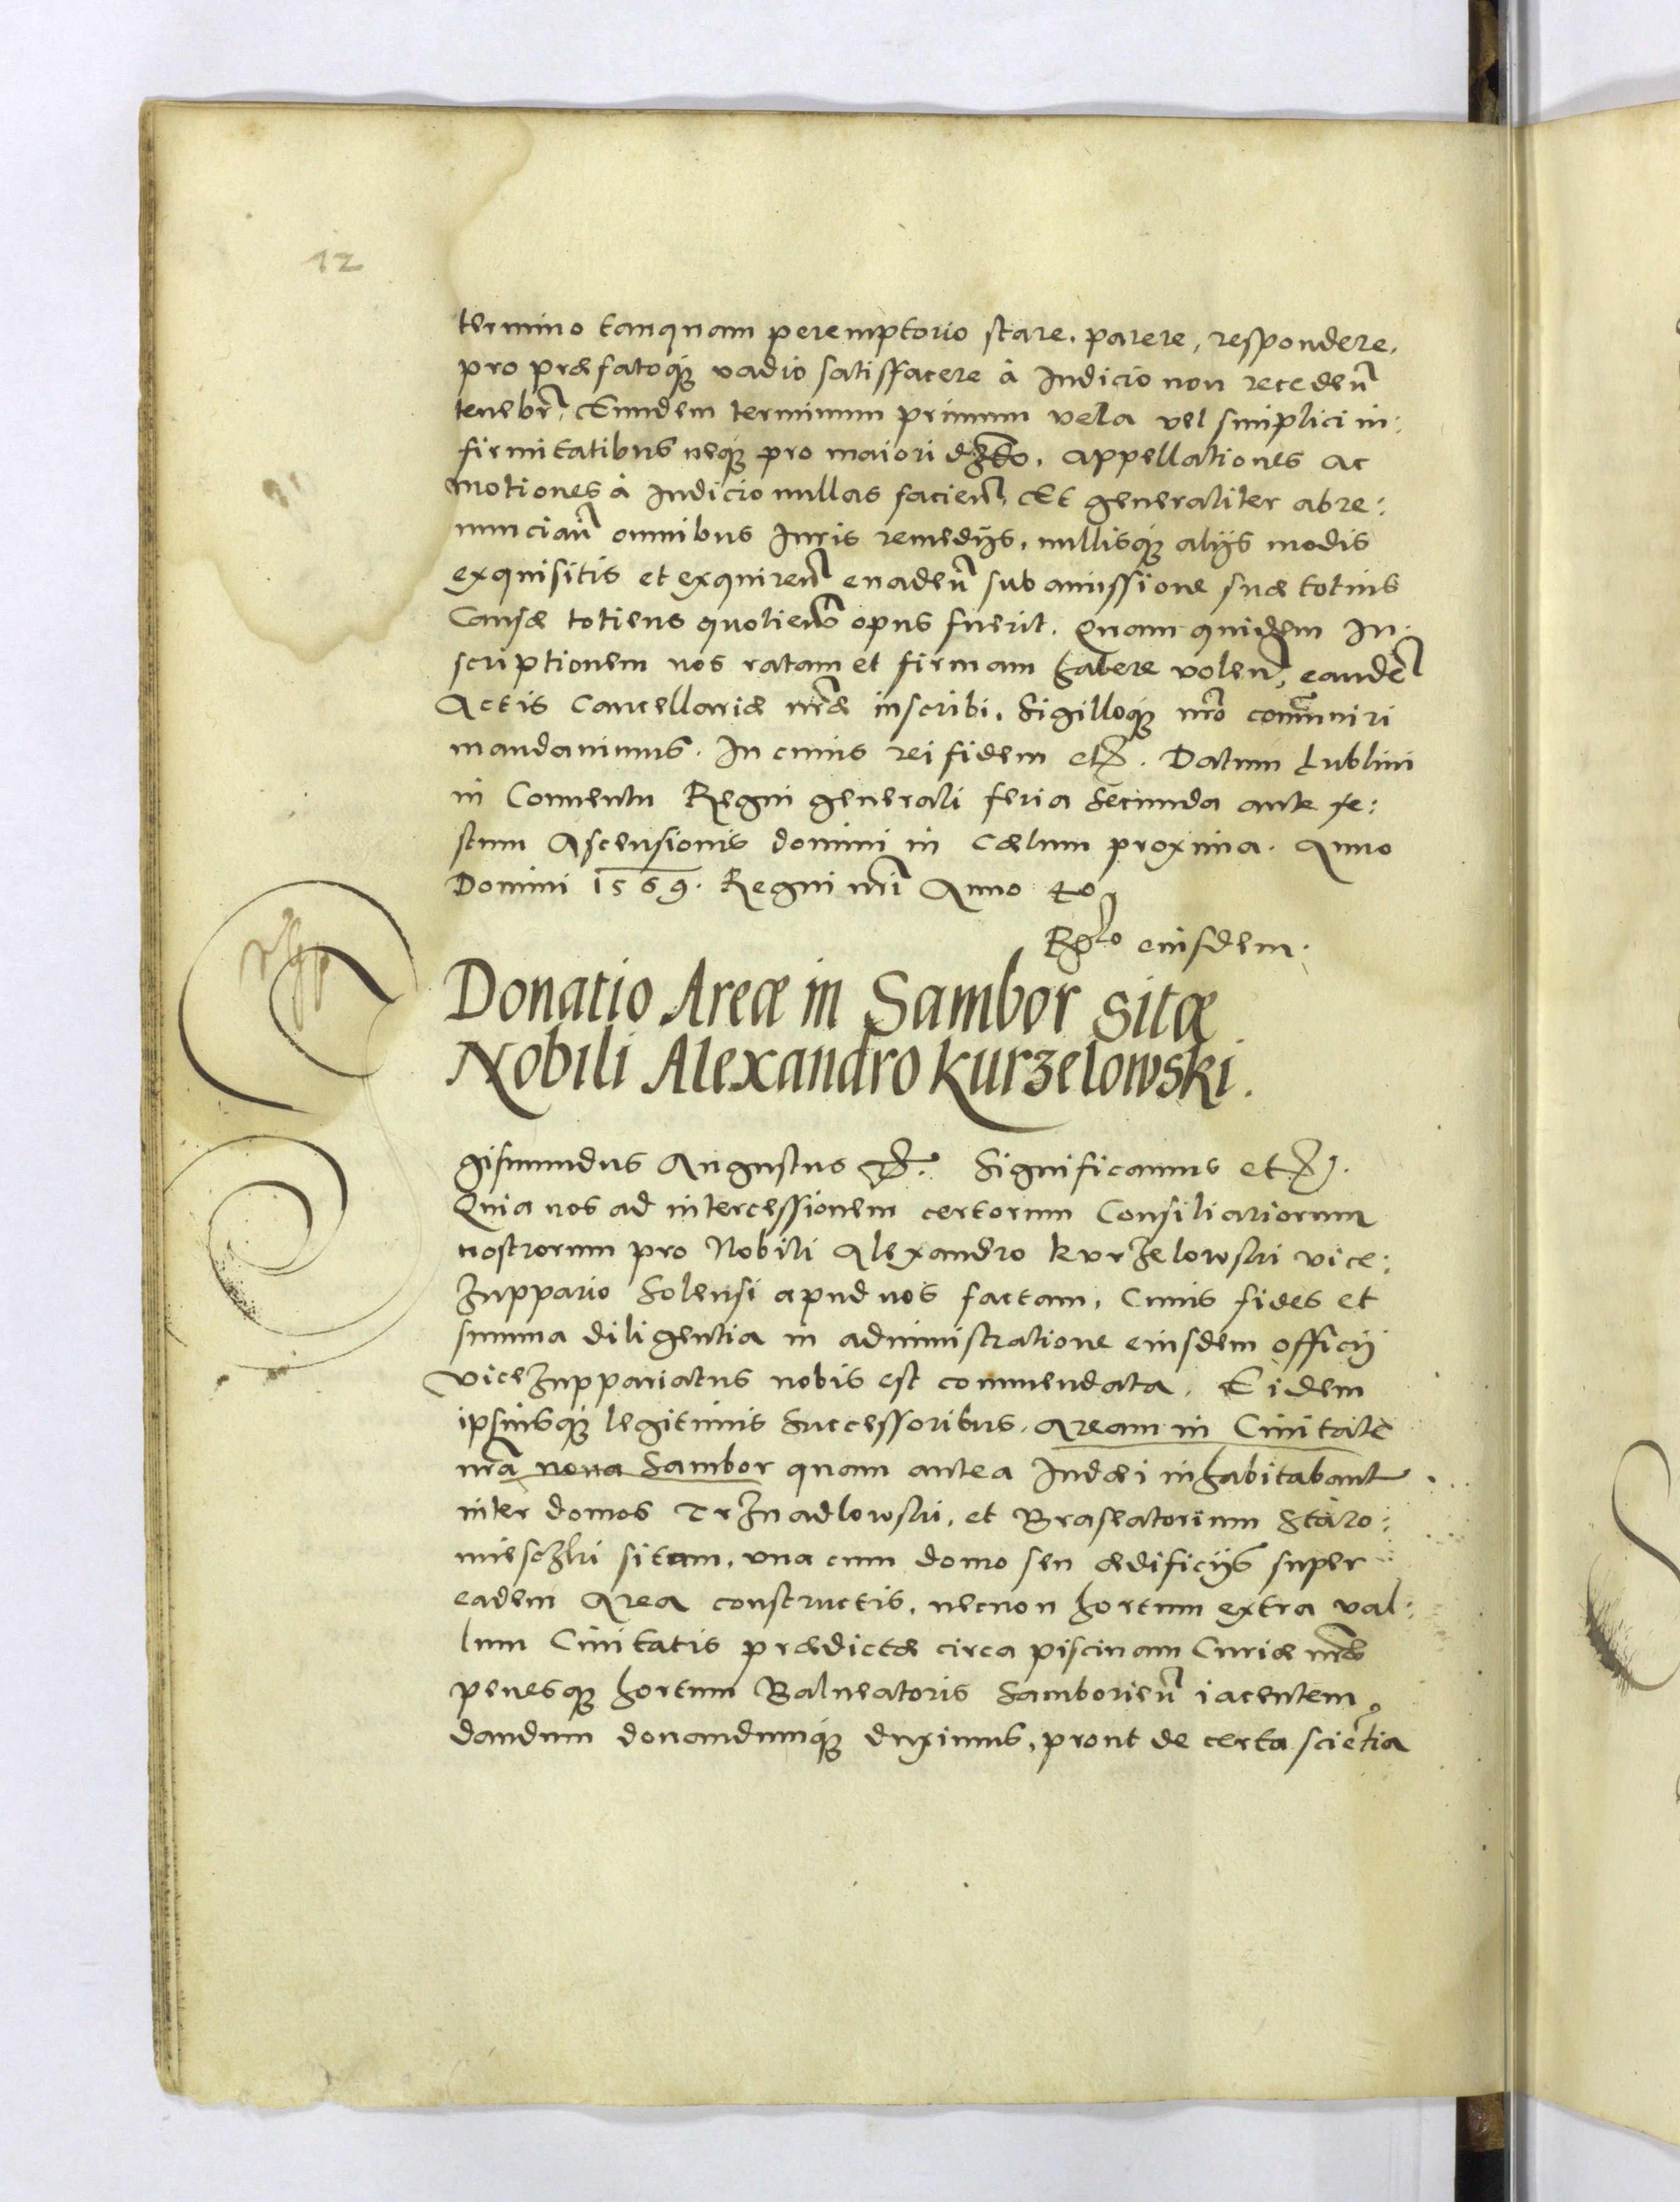 12
termino tanquam peremptorio stare, parere, respondere,
pro præfatoq3 vadio satisfacere à Iudicio non recedeñ
tenebr̃. Eundem terminum primum vela vel simplici in:
firmitatibus neq3 pro maiori appellationes ac
motiones à Iudicio nullas facieñ, Et generaliter abre:
nunciañ omnibus Iuris remedijs, nullisq3 alijs modis
exquisitis et exquireñ euadeñ sub amissione suæ totius
Causæ totiens quotiens opus fuerit. Quam quidem In:
scriptionem nos ratam et firmam habere voleñ, eandẽ
Actis Cancellariæ nr̃æ inscribi, Sigilloq3 nr̃o com̃uniri
mandauimus. In cuius rei fidem etc. Datum Lublini
in Conuentu Regni generali feria Secunda ante fe:
stum Ascensionis domini in Cælum proxima. Anno
Domini 1569. Regni nr̃i Anno 40
eiusdem.
Donatio Areæ in Sambor sitæ
Nobili Alexandro Kurzelowski.
gismundus Augustus etc. Significamus etc.
Quia nos ad intercessionem certorum Consiliariorum
nostrorum pro Nobili Alexandro kvrzelowski vice:
zuppario Solensi apud nos factam, Cuius fides et
summa diligentia in administratione eiusdem officij
vicezuppariatus nobis est commendata, Eidem
ipsiusq3 legitimis Successoribus, Aream in Ciuitate
nr̃a noua Sambor quam antea Iudæi inhabitabant
inter domos Trznadlowski, et Braseatorium Staro:
miesczki sitam, vna cum domo seu ædificijs super
eadem Area constructis, necnon hortum extra val:
lum Ciuitatis prædictæ circa piscinam Curiæ nr̃æ
penesq3 hortum Balneatoris Samborieñ iacentem
dandum donandumq3 duximus, prout de certa sciẽtia